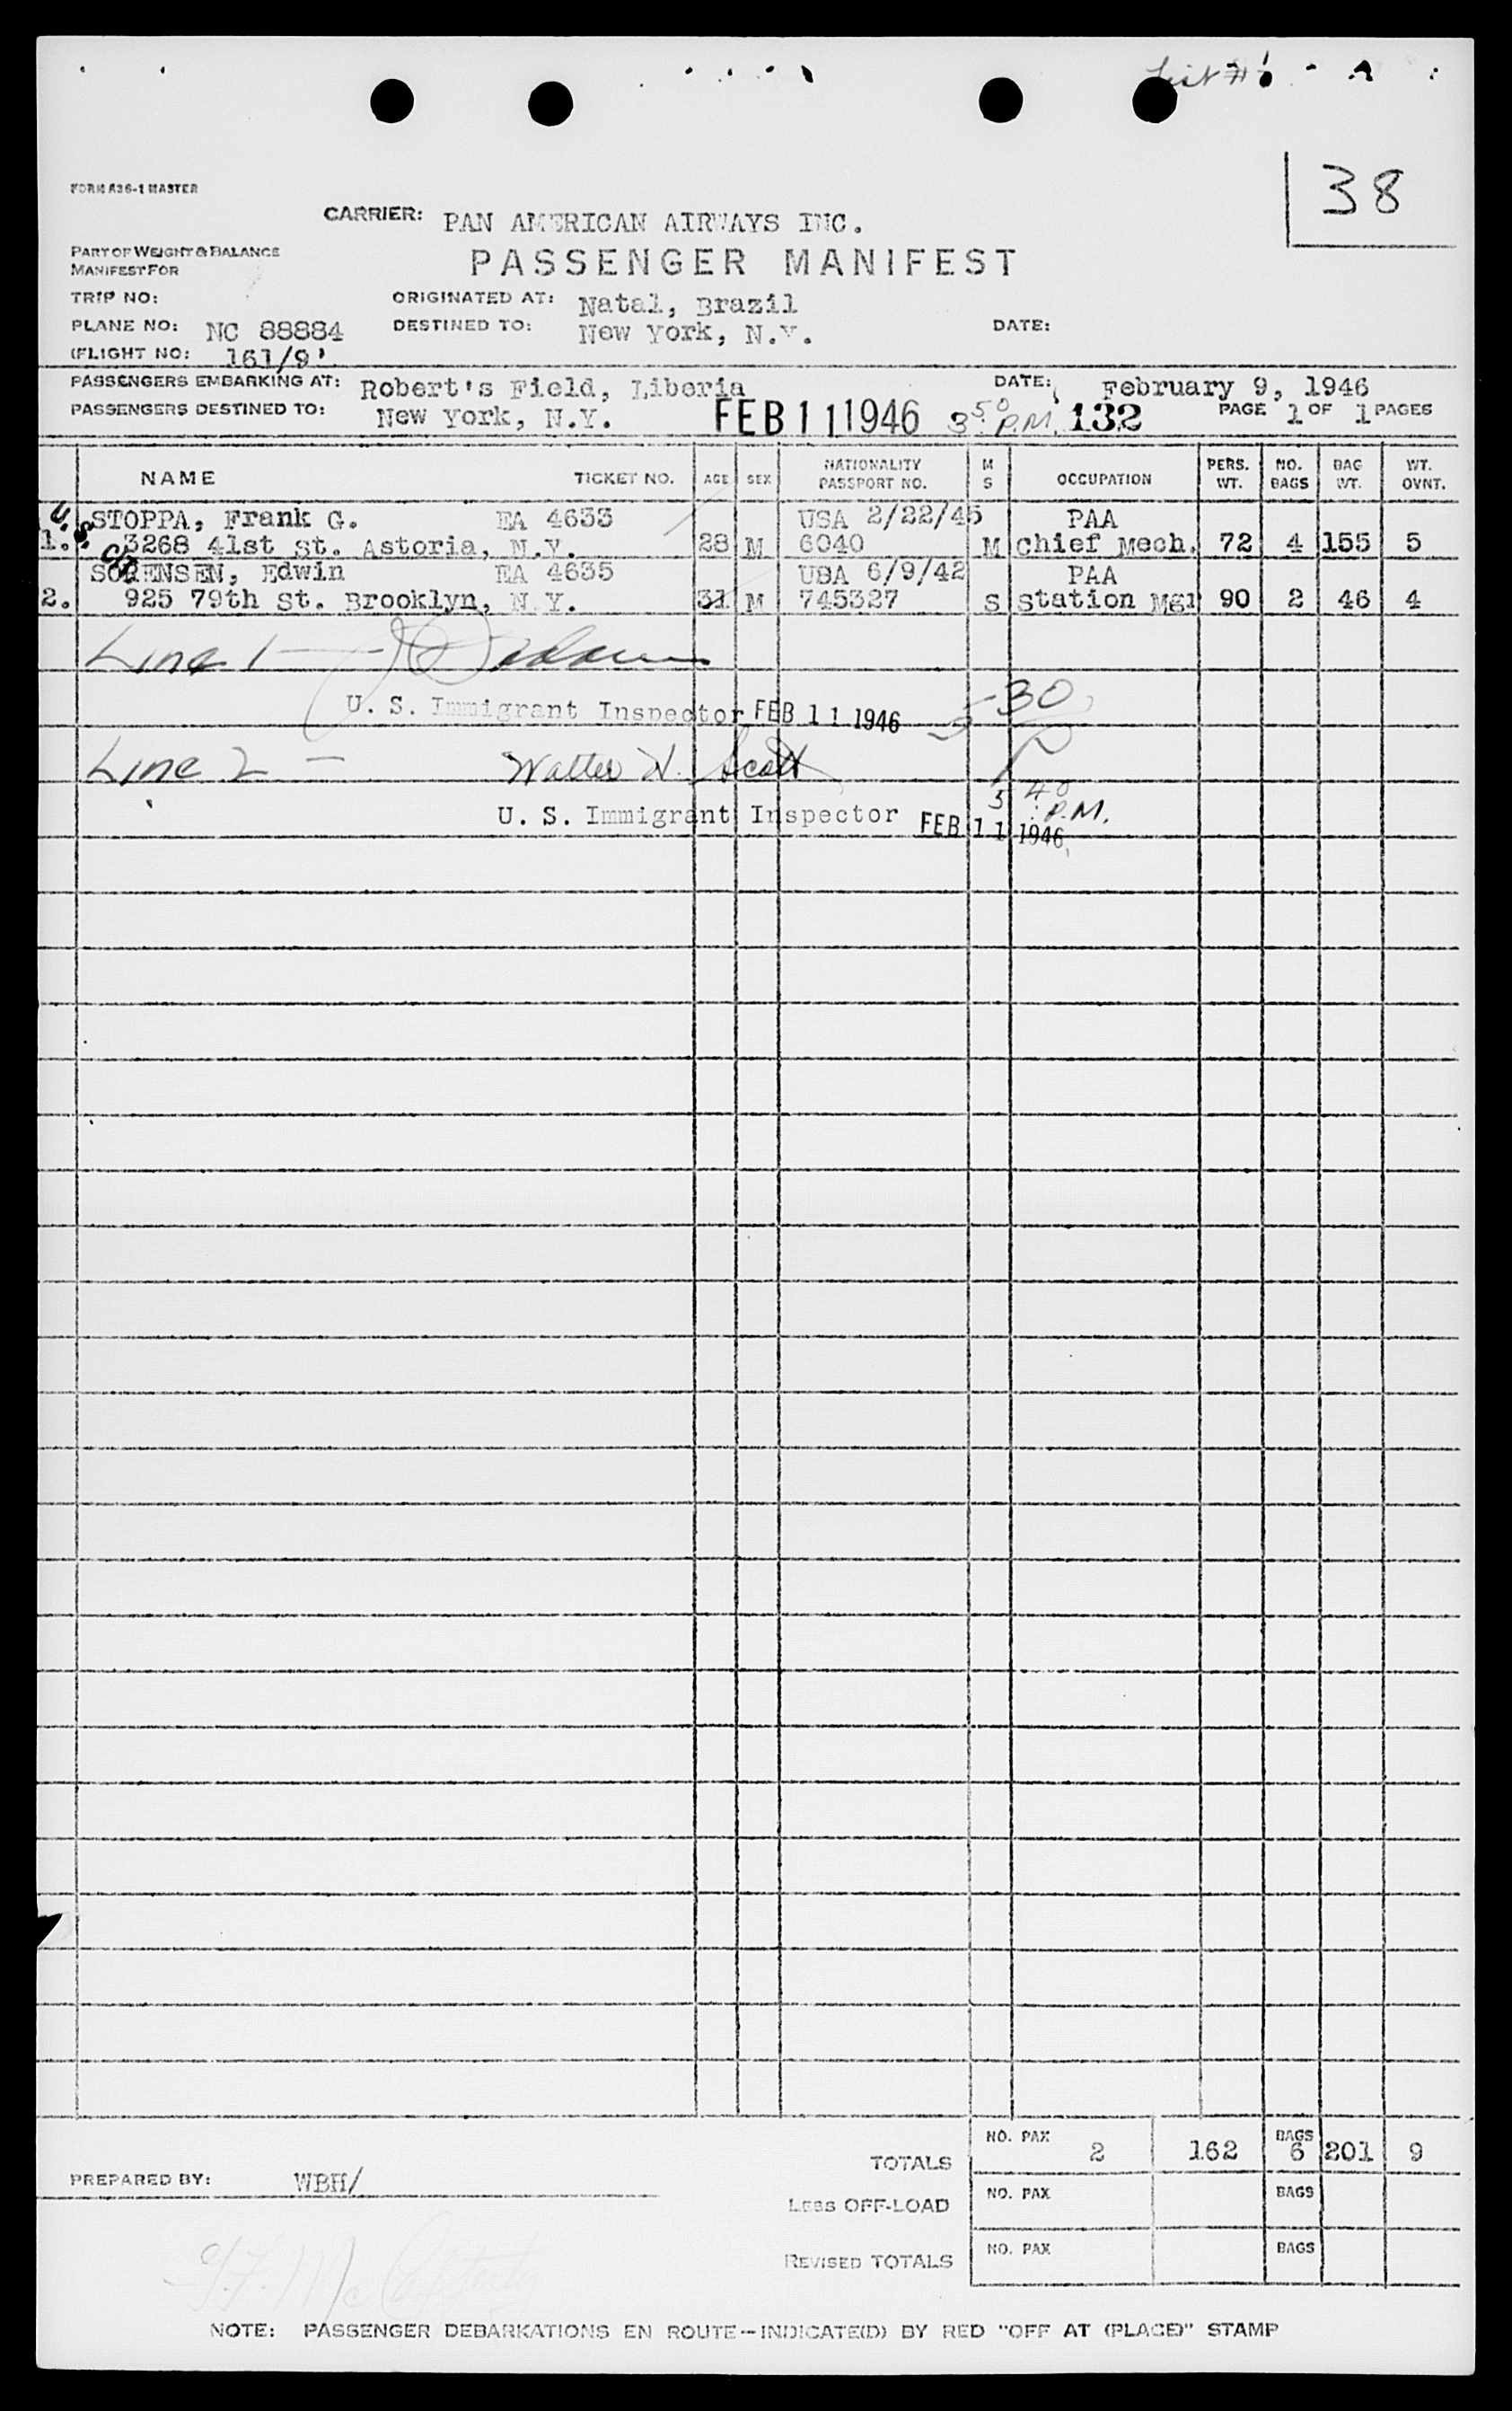 List #
38
FORM A36-1 MASTER
CARRIER: PAN AMERICAN AIRWAYS INC.
PART OF WEIGHT & BALANCE
MANIFEST FOR
PASSENGER MANIFEST
TRIP NO:
ORIGINATED AT: Natal, Brazil
PLANE NO: NC 88884
DESTINED TO: New York, N.Y.
DATE:
(FLIGHT NO: 161/9'
PASSENGERS EMBARKING AT: Robert's Field, Liberia
DATE: February 9, 1946
PASSENGERS DESTINED TO: New York, N.Y.
FEB 11 1946 3 50 P.M. 132
PAGE 1 OF 1 PAGES
NAME TICKET NO. AGE SEX NATIONALITY PASSPORT NO. M S OCCUPATION PERS. WT. NO. BAGS BAG WT. WT. OVNT.
U.S.
STOPPA, Frank G. EA 4633 USA 2/22/45 PAA
1. 3268 41st St. Astoria, N.Y. 28 M 6040 M Chief Mech. 72 4 155 5
SORENSEN, Edwin EA 4635 USA 6/9/42 PAA
2. 925 79th St. Brooklyn, N.Y. 31 M 745327 S Station Mgr 90 2 46 4
Line 1
U. S. Immigrant Inspector FEB 11 1946 5 30 P
Line 2 - Walter N. Scott
U. S. Immigrant Inspector FEB 11 1946 5 40 P.M.
TOTALS NO. PAX 2 162 BAGS 6 201 9
PREPARED BY: WBH/
LESS OFF-LOAD NO. PAX BAGS
REVISED TOTALS NO. PAX BAGS
NOTE: PASSENGER DEBARKATIONS EN ROUTE--INDICATE(D) BY RED "OFF AT (PLACE)" STAMP